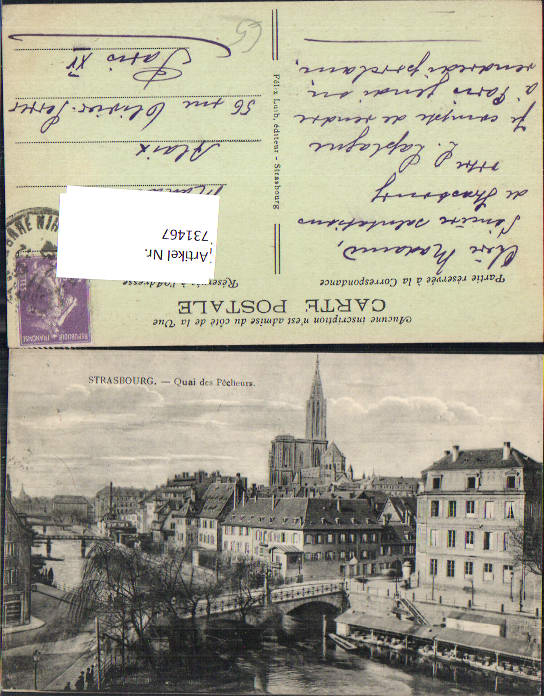 Aucune inscription n'est admise du côté de la Vue
CARTE POSTALE
Partie réservée à la Correspondance
Chère Madame,
Sincère salutations
de Strasbourg
votre L. Laplagne
Je compte de rendre
à Paris jeudi ou
vendredi prochain.
Félix Luib, éditeur - Strasbourg
Réservé à l'Adresse
Alaix
56 rue Olivier-Serres
Paris XV
65
REPUBLIQUE
FRANÇAISE
Artikel Nr.
731467
STRASBOURG. — Quai des Pêcheurs.